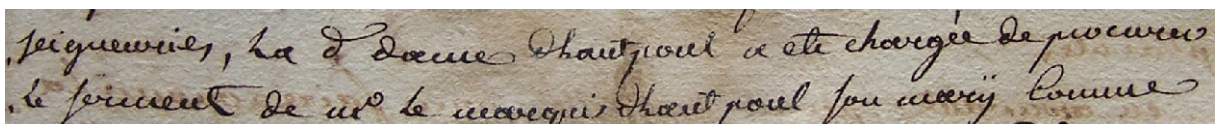 seigneuries, La d dame d'hautpoul a eté chargée de procurer
le serment de mr le marquis d'hautpoul son mary comme